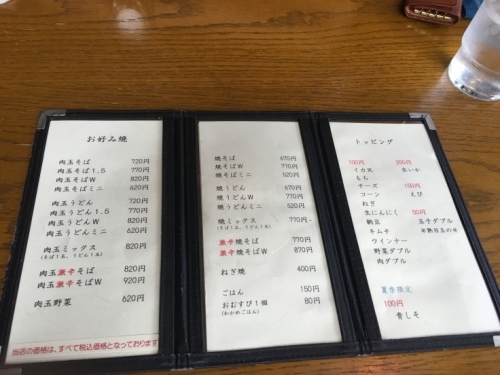 お好み焼
肉玉そば 720円
肉玉そば1.5 770円
肉玉そばW 820円
肉玉そばミニ 620円
肉玉うどん 720円
肉玉うどん1.5 770円
肉玉うどんW 820円
肉玉うどんミニ 620円
肉玉ミックス 820円
(そば1玉、うどん1玉)
肉玉激辛そば 820円
肉玉激辛そばW 920円
肉玉野菜 620円
当店の価格は、すべて税込価格となっております
焼そば 670円
焼そばW 770円
焼そばミニ 520円
焼うどん 670円
焼うどんW 770円
焼うどんミニ 520円
焼ミックス 770円
(そば1玉、うどん1玉)
激辛焼そば 770円
激辛焼そばW 870円
ねぎ焼 400円
ごはん 150円
おむすび1個 80円
(わかめごはん)
トッピング
100円
イカ天
もち
チーズ
コーン
ねぎ
生にんにく
納豆
キムチ
ウインナー
野菜ダブル
肉ダブル
200円
生いか
150円
えび
50円
玉子ダブル
半熟目玉のせ
夏季限定
100円
青しそ